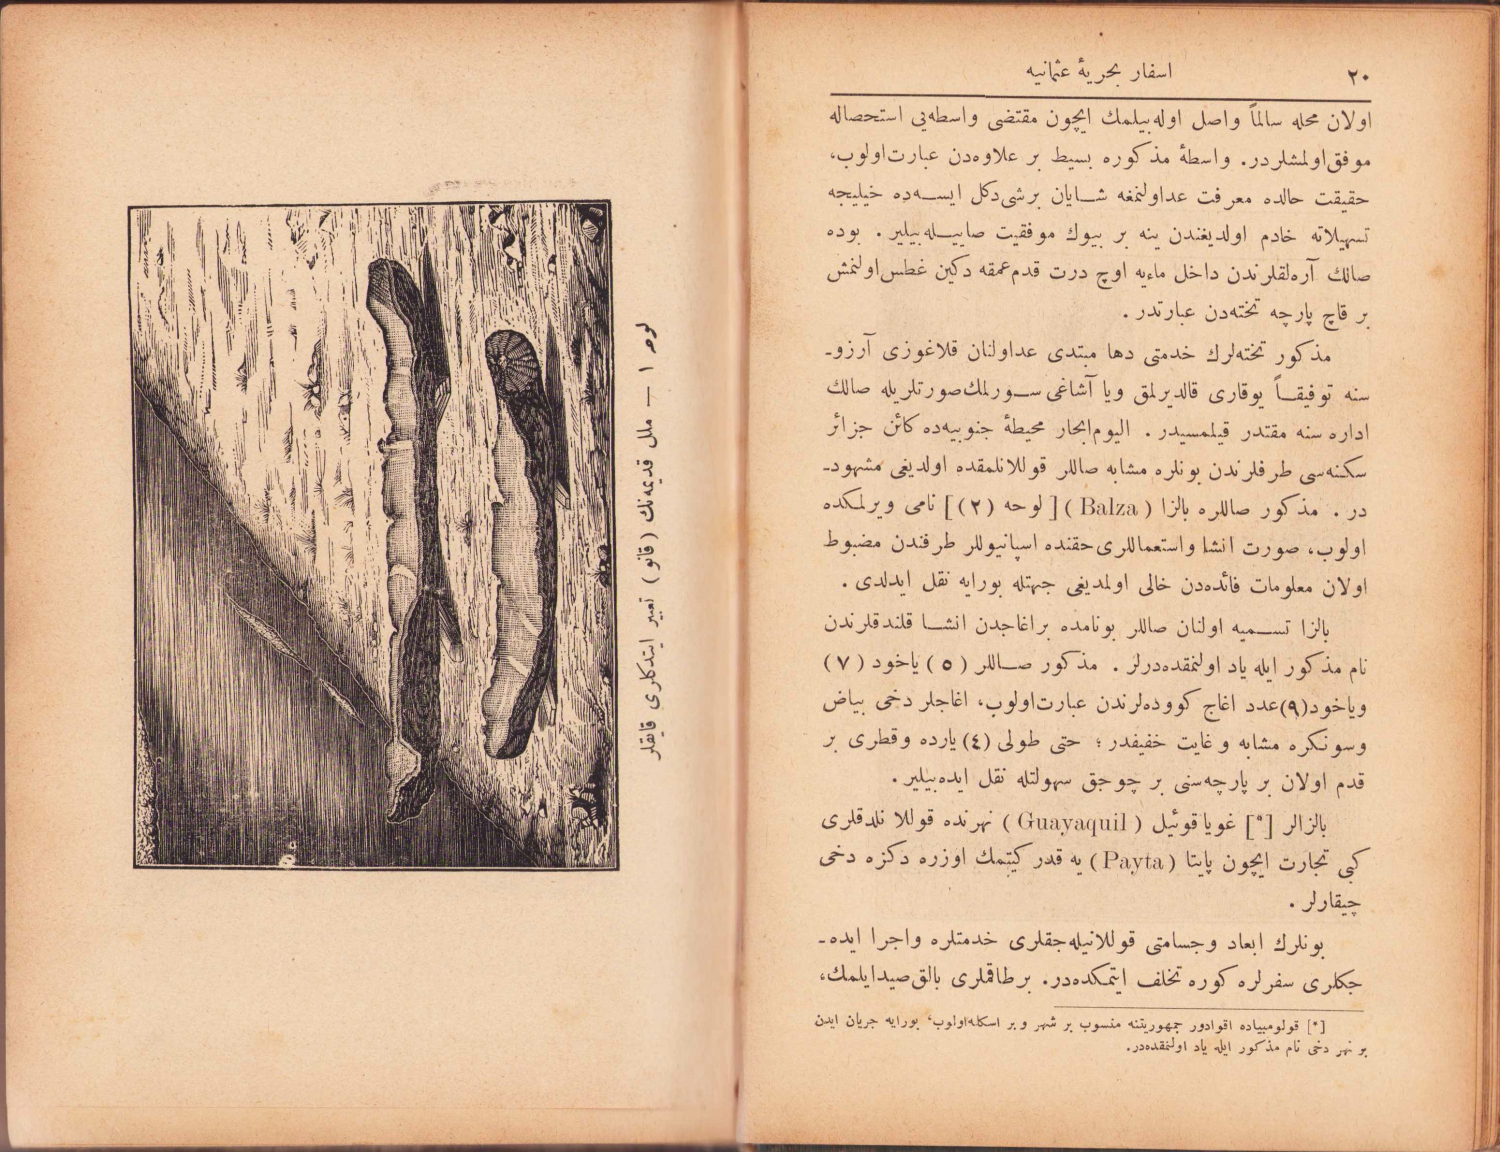 ٢٠
اسفار بحریهٔ عثمانیه
اولان محله سالماً واصل اوله‌بیلمك ایچون مقتضی واسطه‌یی استحصاله
موفق‌اولمشلردر. واسطهٔ مذكوره بسیط بر علاوه‌دن عبارت‌اولوب،
حقیقت حالده معرفت عداولنمغه شایان برشی‌دكل ایسه‌ده خیلیجه
تسهیلاته خادم اولدیغندن ینه بر بیوك موفقیت صاییله‌بیلیر. بوده
صالك آره‌لقلرندن داخل ماءیه اوچ درت قدم‌عمقه دكین غطس‌اولنمش
بر قاچ پارچه تخته‌دن عبارتدر.
مذكور تخته‌لرك خدمتی دها مبتدی عداولنان قلاغوزی آرزو-
سنه توفیقاً یوقاری قالدیرلمق ویا آشاغی سورلمك‌صورتلریله صالك
اداره سنه مقتدر قیلمسیدر. الیوم‌ابحار محیطهٔ جنوبیه‌ده كائن جزائر
سكنه‌سی طرفلرندن بونلره مشابه صاللر قوللانلمقده اولدیغی مشهود-
در. مذكور صاللره بالزا (Balza) [لوحه (٢)] نامی ویرلمكده
اولوب، صورت انشا واستعماللری‌حقنده اسپانیوللر طرفندن مضبوط
اولان معلومات فائده‌دن خالی اولمدیغی جهتله بورایه نقل ایدلدی.
بالزا تسمیه اولنان صاللر بونامده براغاجدن انشا قلندقلرندن
نام مذكور ایله یاد اولنمقده‌درلر. مذكور صاللر (٥) یاخود (٧)
ویاخود(٩)عدد اغاج كووده‌لرندن عبارت‌اولوب، اغاجلر دخی بیاض
وسونكره مشابه و غایت خفیفدر؛ حتی طولی (٤) یارده وقطری بر
قدم اولان بر پارچه‌سنی بر چوجق سهولتله نقل ایده‌بیلیر.
بالزالر [*] غویاقوئیل (Guayaquil) نهرنده قوللا نلدقلری
كبی تجارت ایچون پایتا (Payta) یه قدر كیتمك اوزره دكزه دخی
چیقارلر.
بونلرك ابعاد وجسامتی قوللانیله‌جقلری خدمتلره واجرا ایده-
جكلری سفرلره كوره تخلف ایتمكده‌در. برطاقملری بالق‌صیدایلمك،
[*] قولومبیاده اقوادور جمهوریتنه منسوب بر شهر و بر اسكله‌اولوب، بورایه جریان ایدن
بر نهر دخی نام مذكور ایله یاد اولنمقده‌در.
لوحه ١ — ملل قدیمه‌نك (قانو) تعبیر ایتدكلری قایقلر